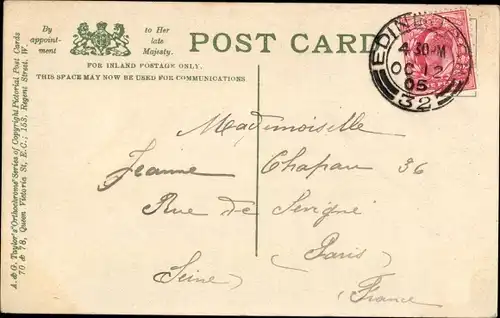 By appointment to Her late Majesty.
POST CARD
FOR INLAND POSTAGE ONLY.
THIS SPACE MAY NOW BE USED FOR COMMUNICATIONS.
A. & G. Taylor's "Orthochrome" Series of Copyright Pictorial Post Cards
70 & 78, Queen Victoria St, E.C.; 153, Regent Street, W.
4 30-M
OC 12
05
32
Mademoiselle
Jeanne Chapau 36
Rue de Sevigné
Paris
Seine
France